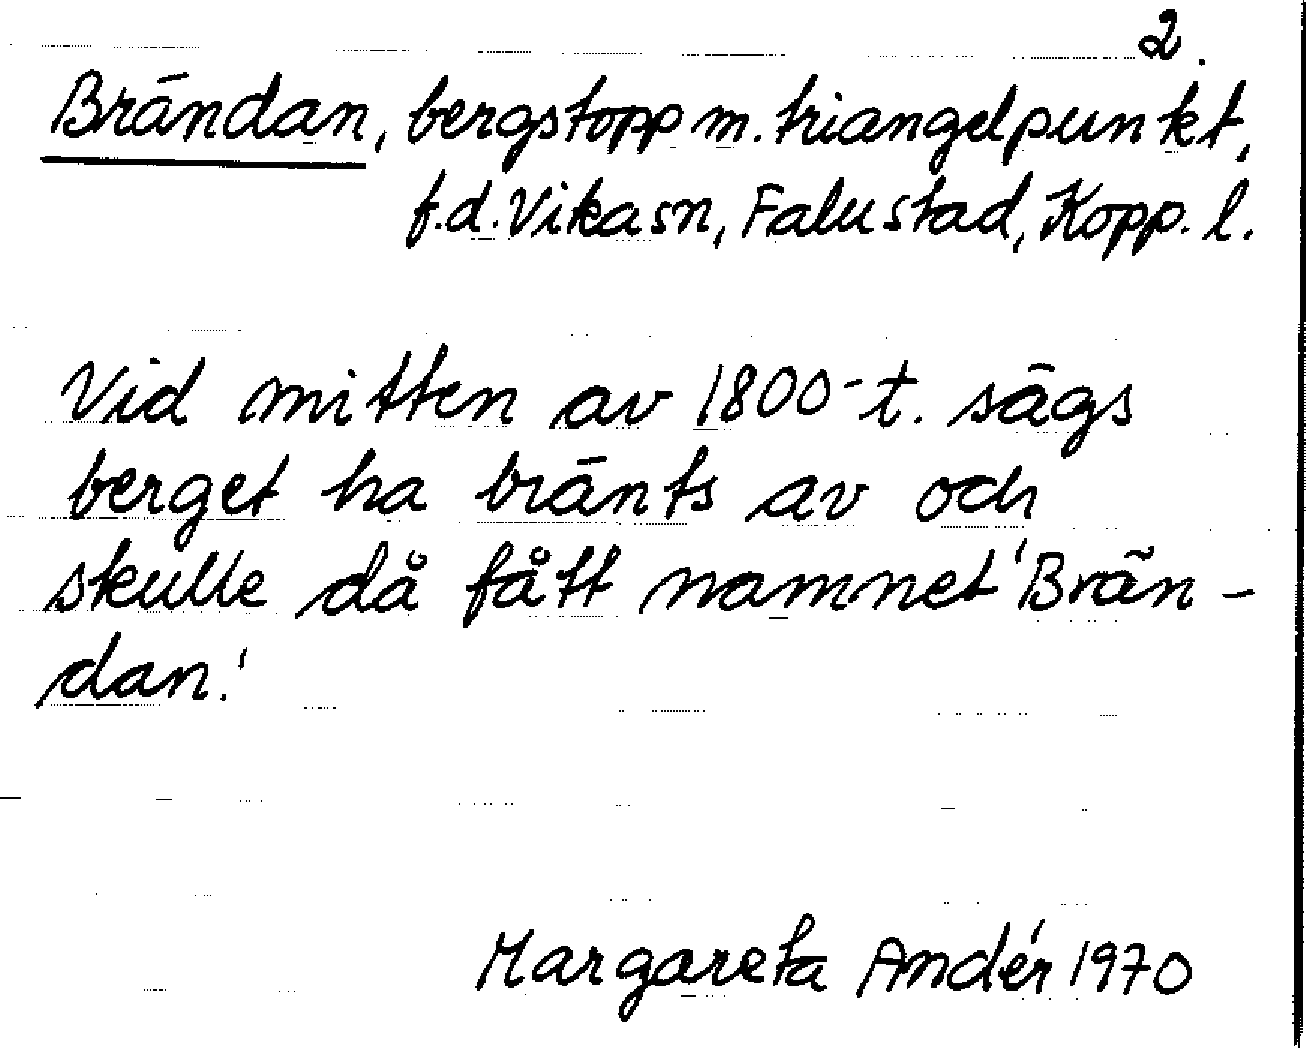 2.
Brändan, bergstopp m. triangelpunkt,
f.d. Vika sn, Falu stad, Kopp. l.
Vid mitten av 1800-t. sägs
berget ha bränts av och
skulle då fått namnet 'Brän-
dan.'
Margareta Andér 1970